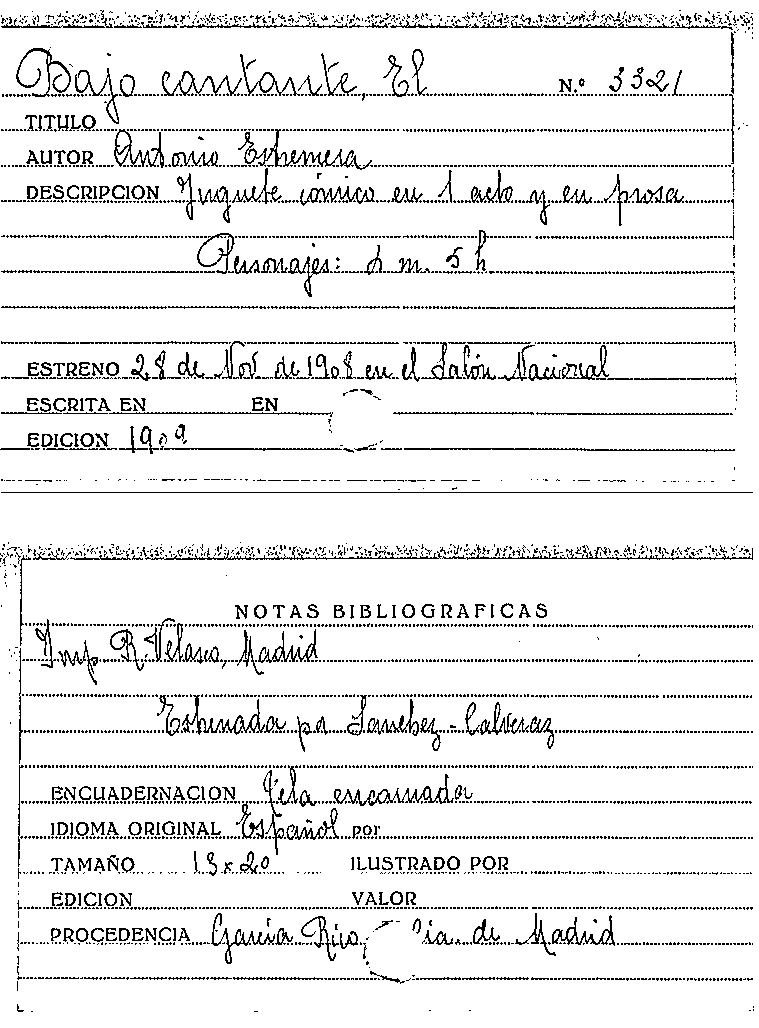 Bajo cantante, El N.º 3321
TITULO
AUTOR Antonio Estremera
DESCRIPCION Juguete cómico en 1 acto y en prosa
Personajes: m. 5 h.
ESTRENO 28 de Nov. de 1908 en el Salón Nacional
ESCRITA EN EN
EDICION 1909
NOTAS BIBLIOGRAFICAS
Imp. R. Velasco, Madrid
Estrenada por Sanchez-Calveraz
ENCUADERNACION Tela encarnada
IDIOMA ORIGINAL Español por
TAMAÑO 13 x 20 ILUSTRADO POR
EDICION VALOR
PROCEDENCIA García Rico, Cia. de Madrid